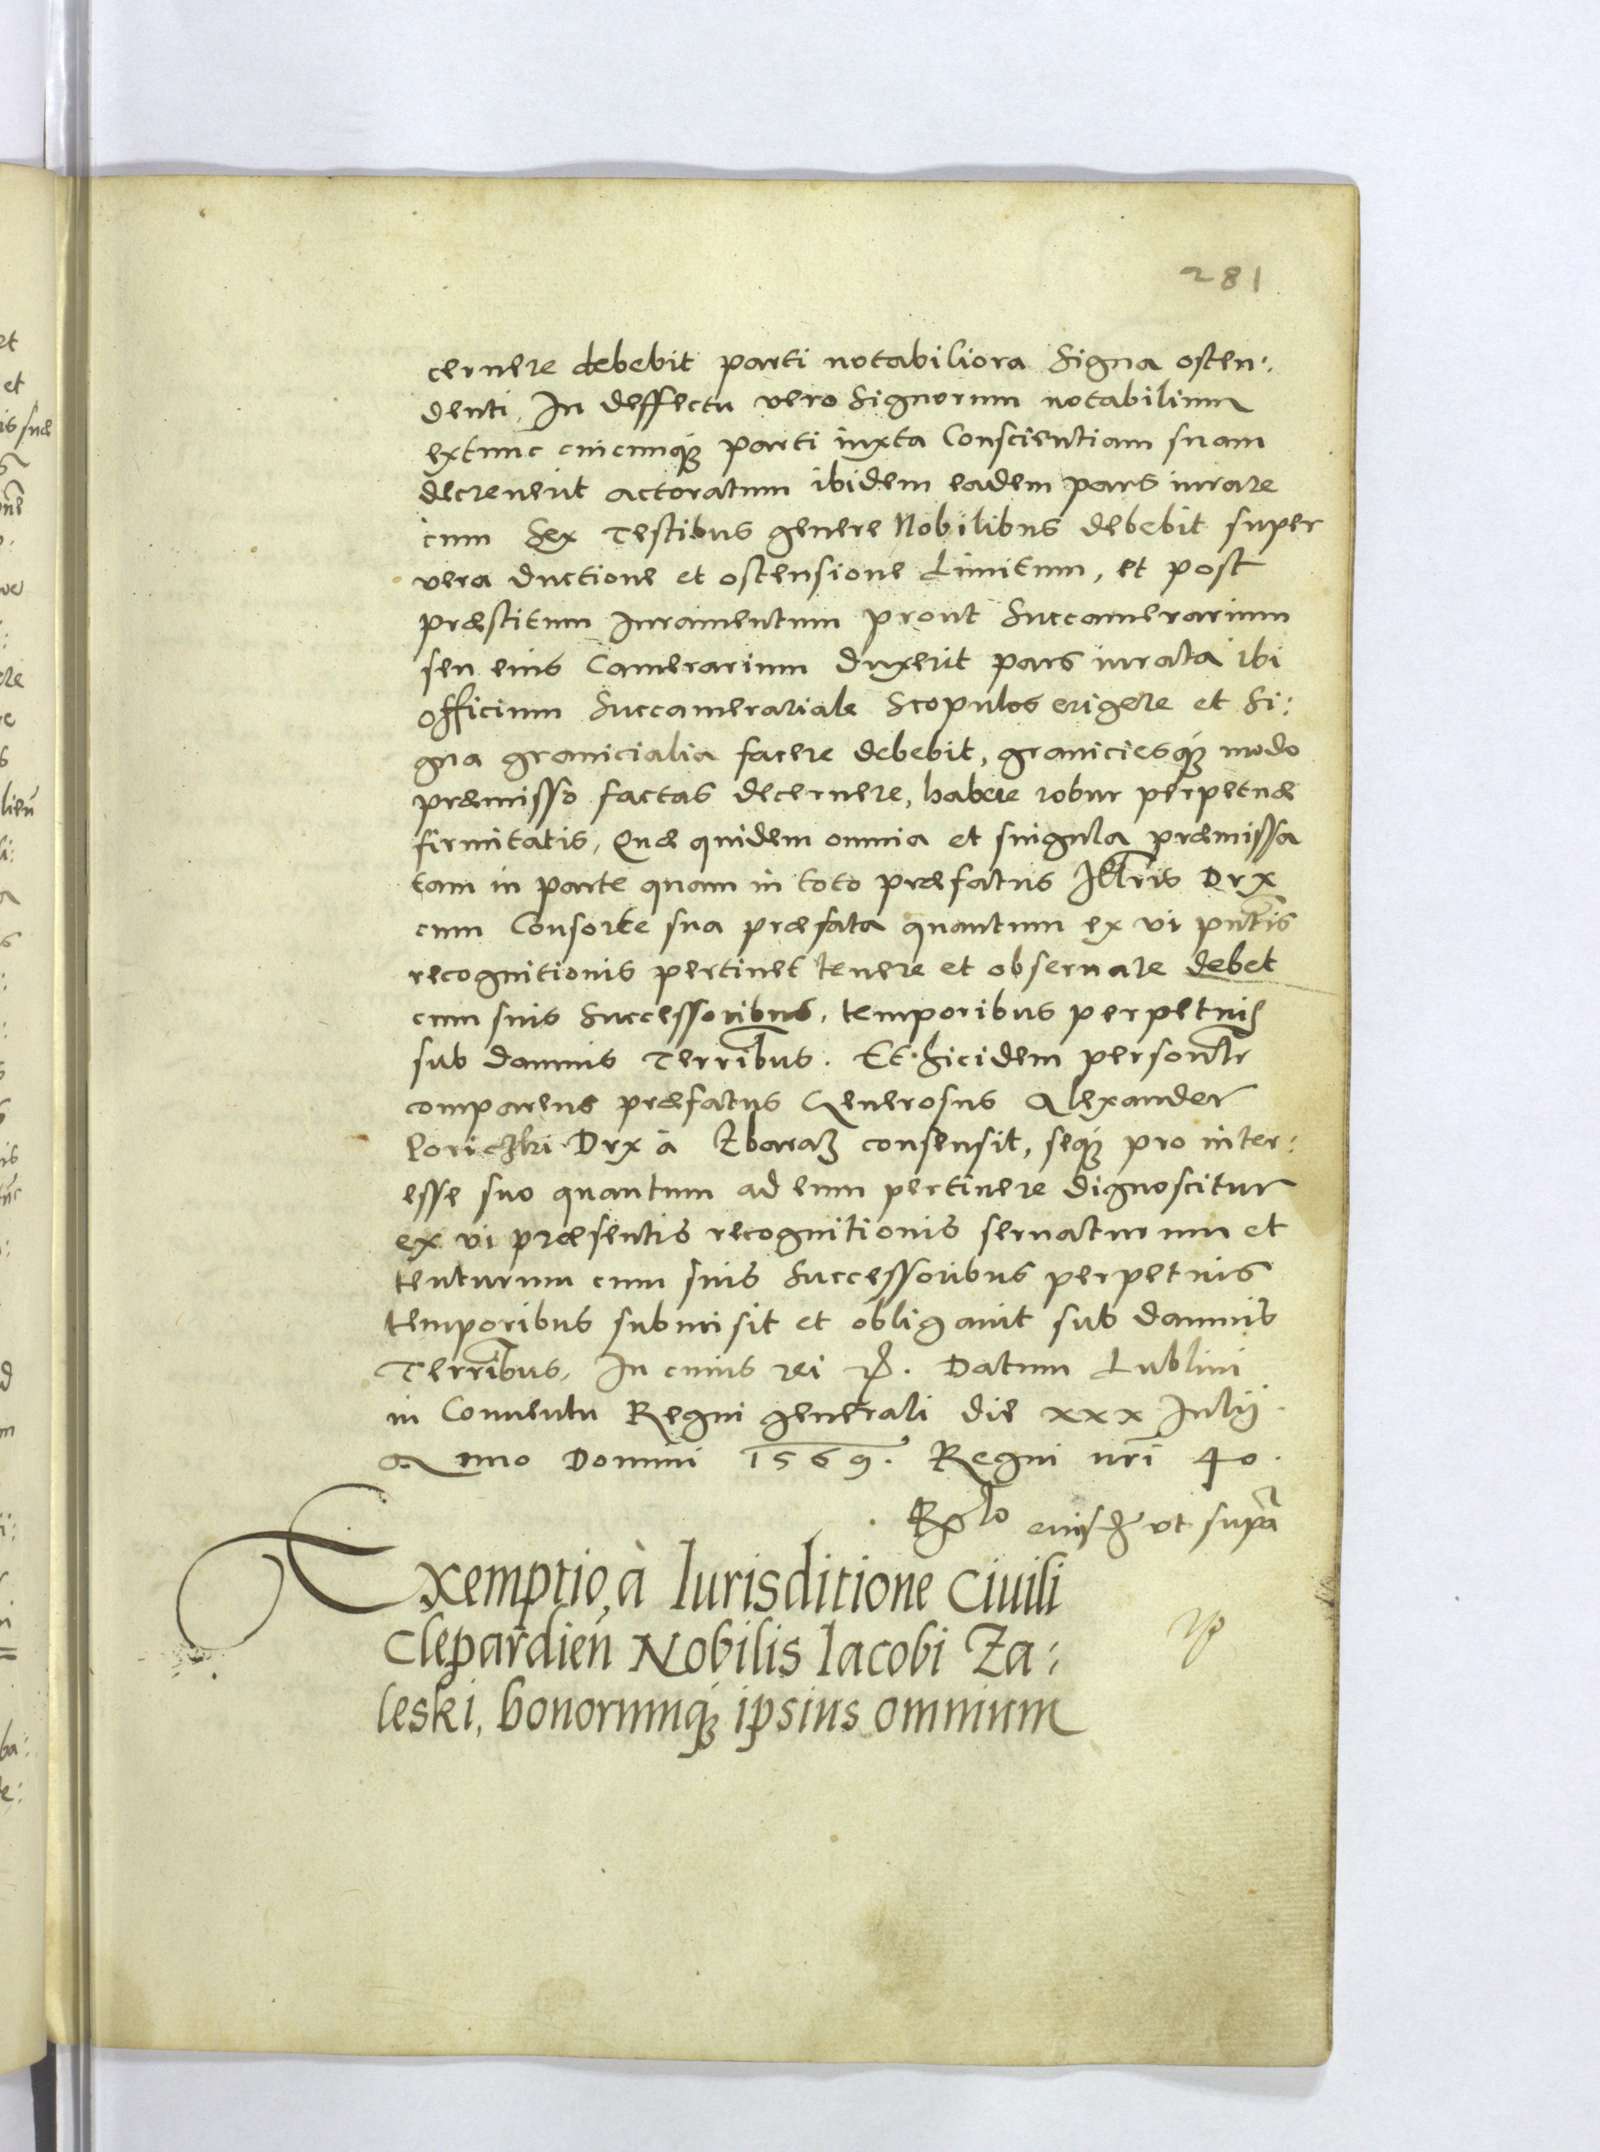 281
cernere debebit parti notabiliora Signa osten:
denti. In deffectu vero Signorum notabilium
extunc cuicunq́ue parti iuxta Conscientiam suam
decreuerit actoratum ibidem eadem pars iurare
cum Sex Testibus genere Nobilibus debebit super
vera ductione et ostensione Limitum, et post
præstitum Iuramentum prout Succamerarium
seu eius Camerarium duxerit pars iurata ibi
officium Succamerariale Scopulos erigere et Si:
gna granicialia facere debebit, graniciesq́ue modo
præmisso factas decernere, habere robur perpetuæ
firmitatis, Quæ quidem omnia et singula præmissa
tam in parte quam in toto præfatus Illris Dux
cum Consorte sua præfata quantum ex vi pntis
recognitionis pertinet tenere et obseruare debet
cum suis Successoribus, temporibus perpetuis
sub damnis Terribus. Et Ibidem personlr
comparens præfatus Generosus Alexander
Poriczki Dux à Zbaraz consensit, seq́ue pro inter:
esse suo quantum ad eum pertinere dignoscitur
ex vi præsentis recognitionis seruaturum et
tenturum cum suis Successoribus perpetuis
temporibus submisit et obligauit sub damnis
Terribus, In cuius rei Datum Lublini
in Conuentu Regni generali die xxx Iulij
Anno Domini 1569. Regni nri 40.
eiusd ut supra
Exemptio, à Iurisditione Ciuili
Clepardień Nobilis Iacobi Za:
leski, bonorumq́ue ipsius omnium